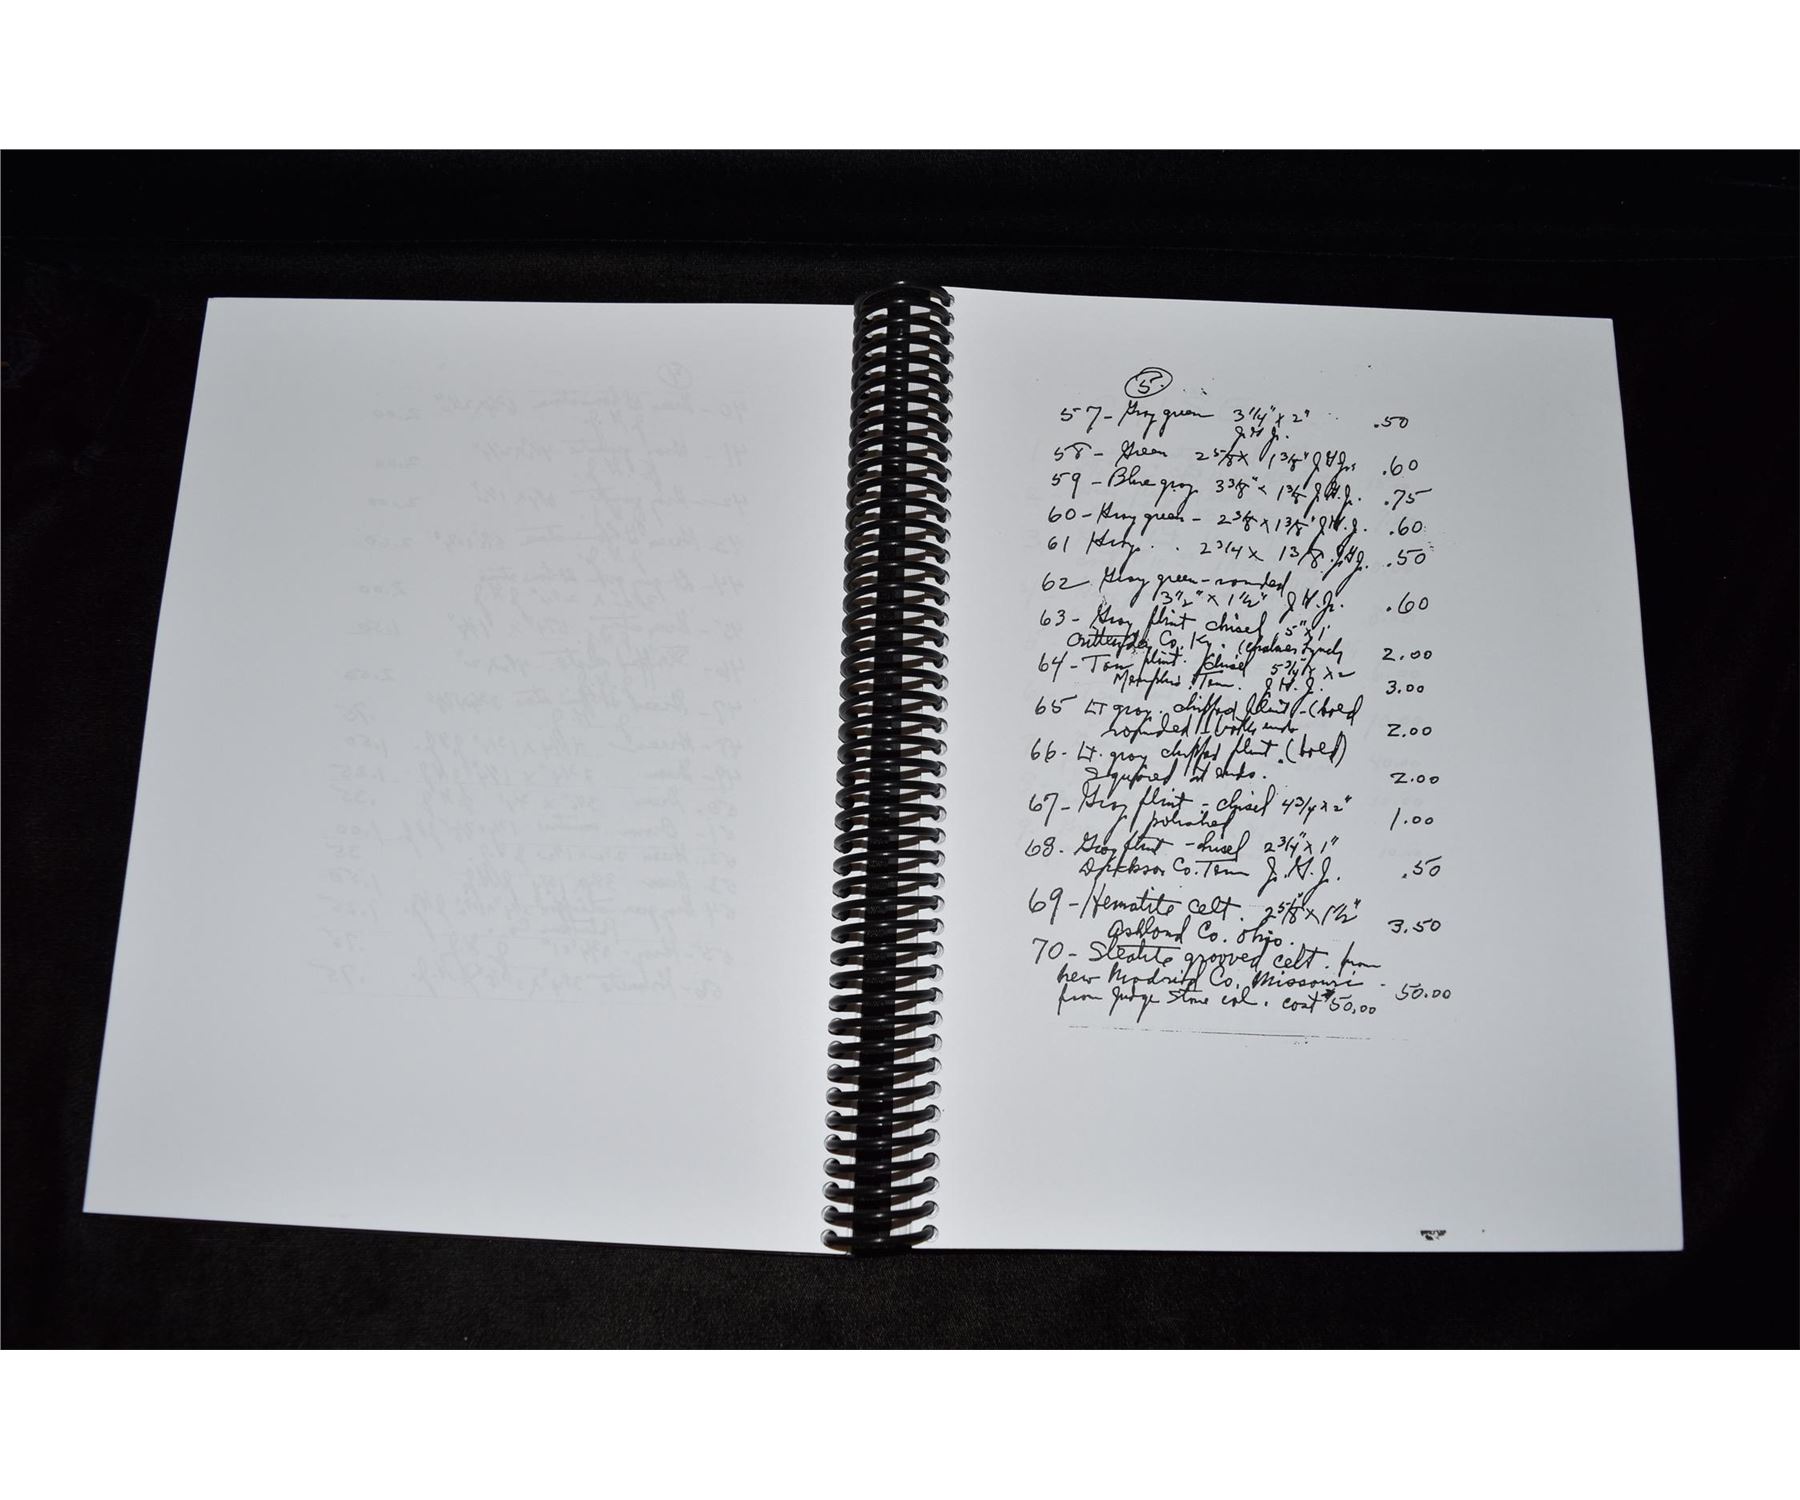 5.
57- Gray green 3 1/4" x 2" .50
J.H.J.
58 - Green 2 5/8 x 1 3/8" J.H.J. .60
59 - Blue gray 3 3/8" x 1 3/8 J.H.J. .75
60 - Gray green - 2 3/8 x 1 3/8" J.H.J. .60
61 Gray . . 2 3/4 x 1 3/8 . J.H.J. .50
62 Gray green - rounded
3 1/2" x 1 1/2" J.H.J. .60
63 - Gray flint chisel 5" x 1"
Crittenden Co. Ky. 2.00
64 - Tan flint. chisel 5 3/4 x 2
Memphis, Tenn. J.H.J. 3.00
65 LT gray. chipped flint -
rounded both ends 2.00
66 - LT. gray chipped flint.
squared at ends. 2.00
67 - Gray flint - chisel 4 3/4 x 2"
polished 1.00
68. Gray flint - chisel 2 3/4" x 1"
Dickson Co. Tenn J.H.J. .50
69 - Hematite celt. 2 5/8" x 1 1/2"
Ashland Co. Ohio. 3.50
70 - Steatite grooved celt. from
New Madrid Co. Missouri.
from Judge Stone col. cost $50.00 50.00